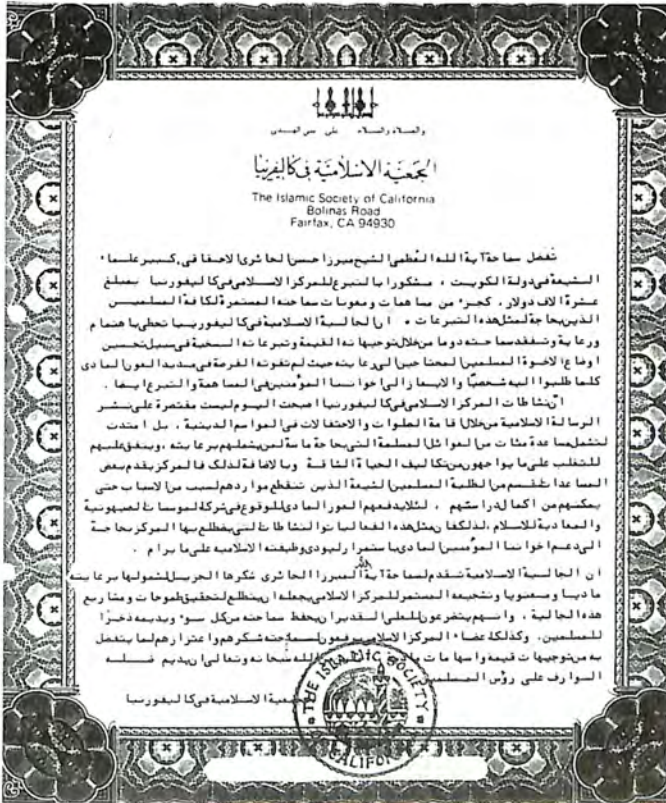 والصلاة والسلام على نبي الهدى
الجمعية الاسلامية في كاليفرنيا
The Islamic Society of California
Bolinas Road
Fairfax, CA 94930
تفضل سماحة آية الله العظمى الشيخ ميرزا حسن الحائري الاحقاقي، كبير علماء
الشيعة في دولة الكويت، مشكورا بالتبرع للمركز الاسلامي في كاليفورنيا بمبلغ
عشرة الاف دولار، كجزء من مساهمات ومعونات سماحته المستمرة لكافة المسلمين
الذين بحاجة لمثل هذه التبرعات. ان الجالية الاسلامية في كاليفورنيا تحظى باهتمام
ورعاية وتفقد سماحته دوما من خلال توجيهاته القيمة وتبرعاته السخية في سبيل تحسين
اوضاع الاخوة المسلمين المحتاجين الى رعايته حيث لم تفوته الفرصة في مديد العون المادي
كلما طلبوا اليه شخصيًا والايعاز الى اخواننا المؤمنين في المساهمة والتبرع ايضا.
ان نشاطات المركز الاسلامي في كاليفورنيا اصبحت اليوم ليست مقتصرة على نشر
الرسالة الاسلامية من خلال اقامة الصلوات والاحتفالات في المواسم الدينية، بل امتدت
لتشمل مساعدة مئات من العوائل المسلمة التي بحاجة ماسة لمن يشملهم برعايته، وينفق عليهم
للتغلب على ما يواجهون من تكاليف الحياة الشاقة وبالاضافة لذلك فالمركز يقدم بعض
المساعدات لقسم من الطلبة المسلمين الشيعة الذين تنقطع مواردهم لسبب من الاسباب حتى
يمكنهم من اكمال دراستهم، لئلا يدفعهم العوز المادي للوقوع في شركة الموسسات الصهيونية
والمعادية للاسلام، لذلك فان مثل هذه الفعاليات والنشاطات التي يضطلع بها المركز بحاجة
الى دعم اخواننا المؤمنين المادي باستمرار ليودي وظيفته الاسلامية على ما يرام.
ان الجالية الاسلامية تتقدم لسماحة آية الله الميرزا الحائري شكرها الجزيل لشمولها برعايته
ماديا ومعنويا وتشجيعه المستمر للمركز الاسلامي يجعله ان يتطلع لتحقيق طموحات ومشاريع
هذه الجالية. وانهم يتضرعون للعلي القدير ان يحفظ سماحته من كل سوء ويديمه ذخرًا
للمسلمين. وكذلك اعضاء المركز الاسلامي يرفعون لسماحته شكرهم واعتزازهم لما يتفضل
به من توجيهات قيمة واسهامات الله سبحانه وتعالى ان يديم ظله
الوارف على رؤس المسلمين
الاسلامية في كاليفورنيا
THE ISLAMIC SOCIETY
CALIFORNIA